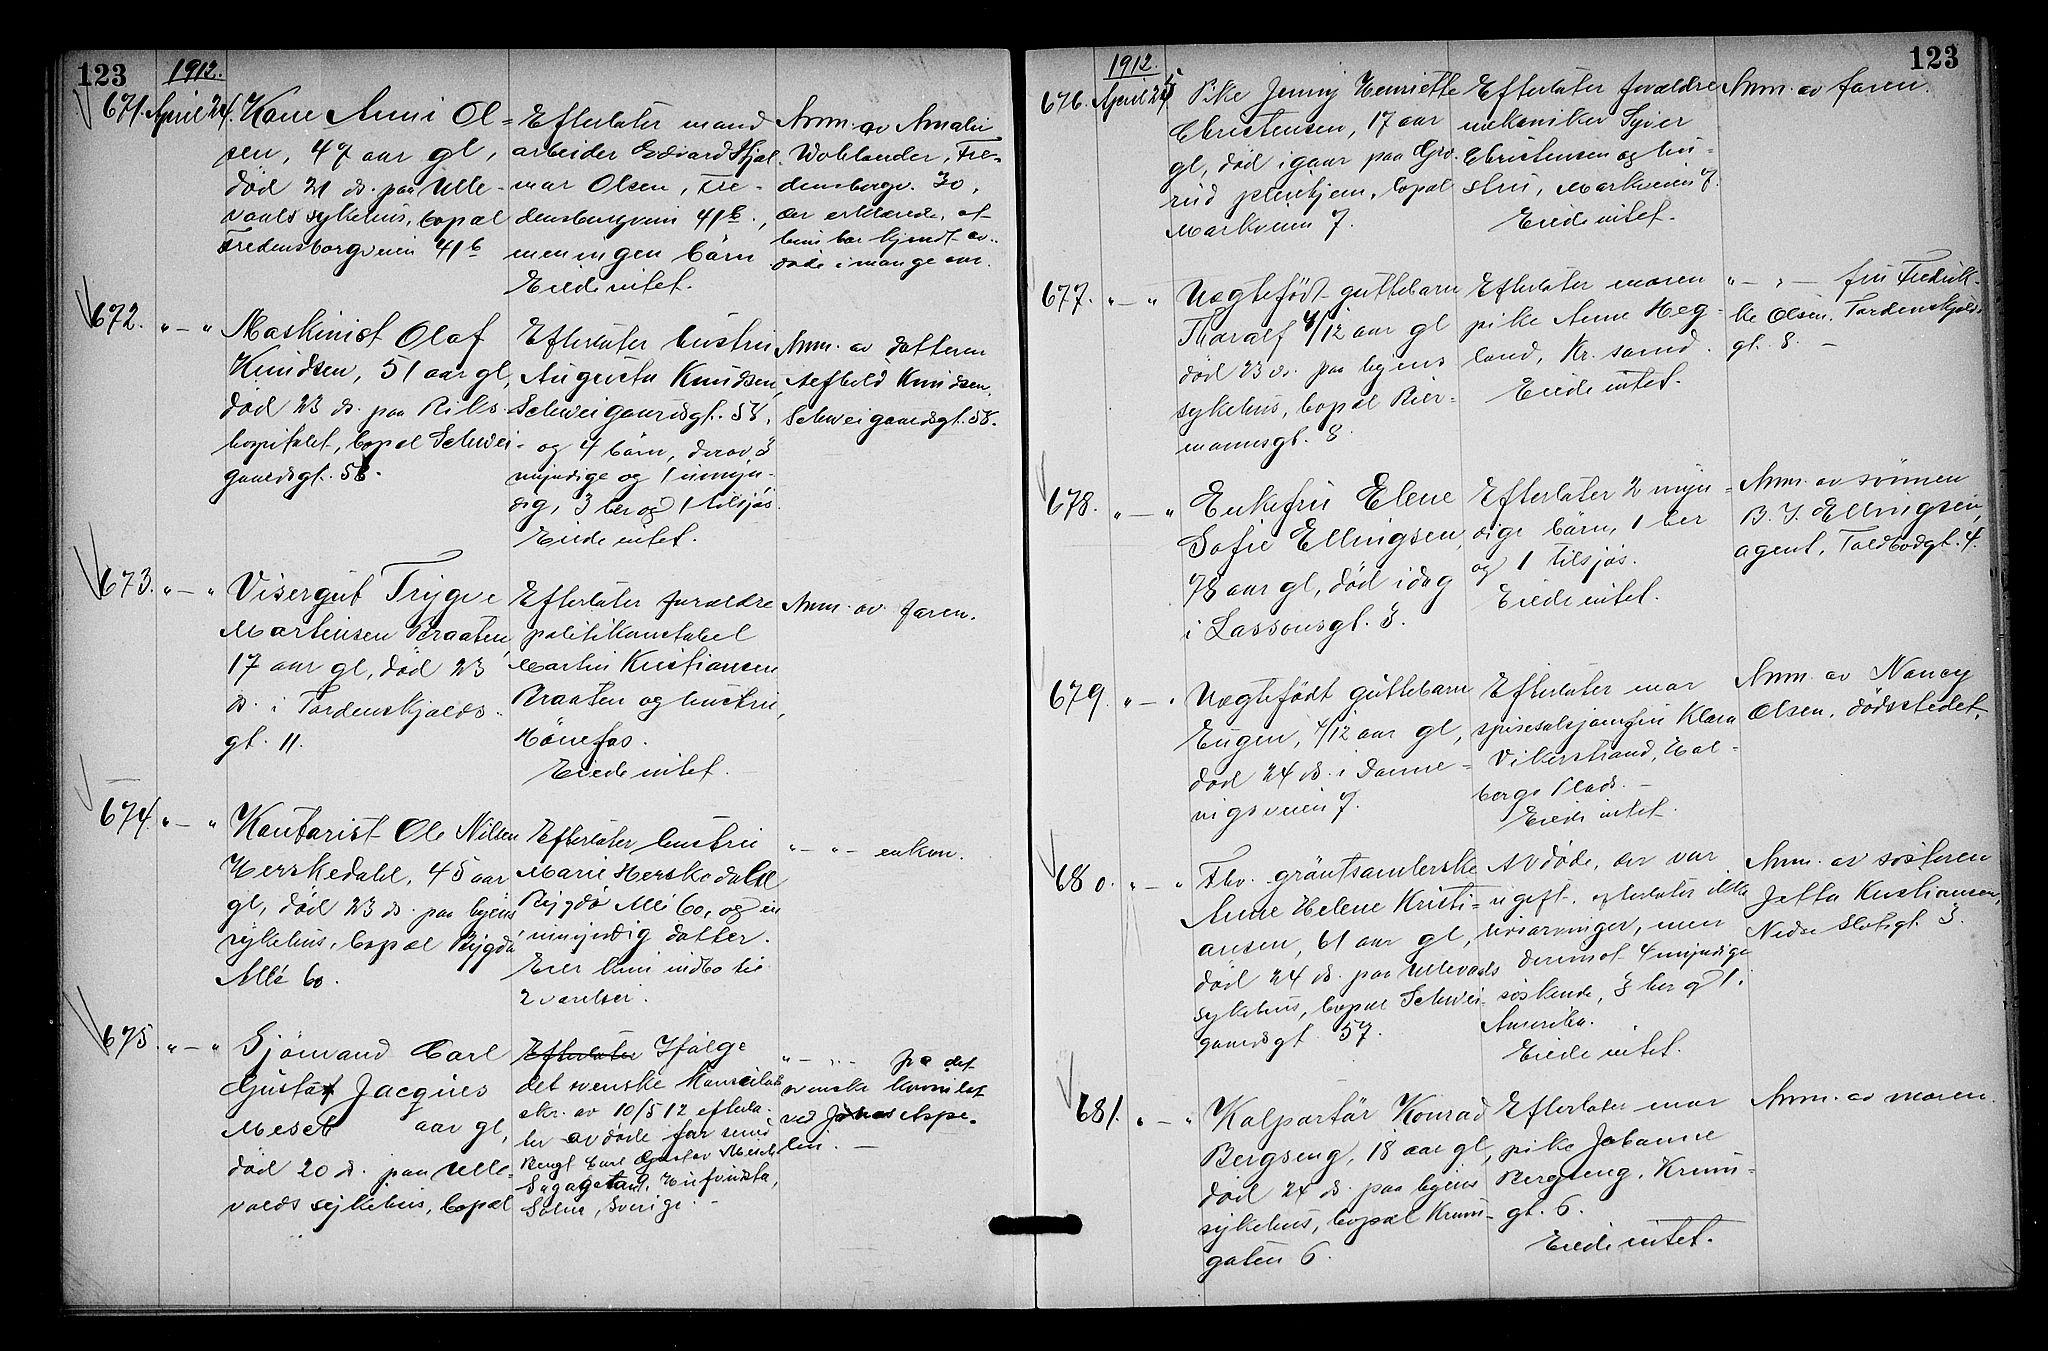 123
1912.
671. April 24. Kone Anni Ol-
sen, 47 aar gl,
død 21 ds. paa Ulle-
vaals sykehus, bopæl
Fredensborgveien 41b
Efterlater mand
arbeider Edvard Hjal-
mar Olsen, Fre-
densborgveien 41b,
men ingen børn
Eiede intet.
Anm. av Amalie
Wohlander, Fre-
densborgv. 30,
der erklærede, at
hun har kjendt av-
døde i mange aar.
672. " — " Maskinist Olaf
Knudsen, 51 aar gl,
død 23 ds. paa Riks-
hospitalet, bopæl Schwei-
gaardsgt. 58.
Efterlater hustru
Augusta Knudsen,
Schweigaardsgt. 58,
og 4 børn, derav 3
myndige og 1 umyn-
dig, 3 her og 1 tilsjøs.
Eiede intet.
Anm. av datteren
Knudsen,
Schweigaardsgt. 58.
673. " — " Visergut Trygve
Martinsen Braaten,
17 aar gl, død 23
ds. i Tordenskjolds-
gt. 11.
Efterlater forældre
politikonstabel
Martin Kristiansen
Braaten og hustru,
Hönefos.
Eiede intet.
Anm. av faren.
674. " — " Kontorist Ole Nilsen
Herskedahl, 45 aar
gl, død 23 ds. paa byens
sykehus, bopæl Bygdö
Allé 60.
Efterlater hustru
Marie Herskedahl
Bygdö Allé 60, og en
umyndig datter.
Eier kun indbo til
2 værelser.
" — " — enken.
675. " — " Sjömand Carl
Gustaf Jacques
Mesch aar gl,
död 20 ds. paa Ulle-
valds sykehus, bopæl
Efterlater Ifølge
det svenske Konsulats
skr. av 10/5 12 efterla-
ter avdøde far smed
Bengt Carl Gustav Mesch
Sagagatan 9, Hufvudsta,
Solna, Sverige. —
" — " — fra det
svenske konsulat
ved Johs Appe-
lin. —
123
1912.
676. April 25 Pike Jenny Henriette
Christensen, 17 aar
gl, død igaar paa Gro-
rud pleiehjem, bopæl
Markveien 7.
Efterlater forældre
mekaniker Syver
Christensen og hu-
stru, Markveien 7.
Eiede intet.
Anm. av faren.
677. " — " Uægtefödt guttebarn
Tharalf 4/12 aar gl
død 23 ds. paa byens
sykehus, bopæl Bier-
mannsgt. 8.
Efterlater moren
pike Anne Heg-
land, Kr. sand.
Eiede intet.
" — " — fru Fredrik-
ke Olsen, Tordenskjolds-
gt. 8. —
678. " — " Enkefru Elene
Sofie Ellingsen,
78 aar gl, død idag
i Lassonsgt. 3.
Efterlater 2 myn-
dige børn, 1 her
og 1 tilsjøs.
Eiede intet.
Anm. av sønnen
B. S. Ellingsen,
agent, Toldbodgt. 4.
679. " — " Uægtefödt guttebarn
Eugen, 4/12 aar gl,
død 24 ds. i Danne-
vigsveien 7.
Efterlater mor
spisesalsjomfru Klara
Vikerstrand, Hol-
bergs Plads. —
Eiede intet.
Anm. av Nancy
Olsen, dødsstedet.
680. " — " Fhv. gröntsamlerske
Anne Helene Kristi-
ansen, 61 aar gl,
død 24 ds. paa Ullevaals
sykehus, bopæl Schwei-
gaardsgt. 57.
Avdøde, der var
ugift, efterlater ikke
livsarvinger, men
derimot 4 myndige
söskende, 3 her og 1 i
Amerika.
Eiede intet.
Anm. av søsteren
Jetta Kristiansen,
Nedre Slotsgt. 3.
681. " — " Kolportör Konrad
Bergseng, 18 aar gl,
død 24 ds. paa byens
sykehus, bopæl Krum-
gaten 6.
Efterlater mor
pike Johanne
Bergseng, Krum-
gt. 6.
Eiede intet.
Anm. av moren.